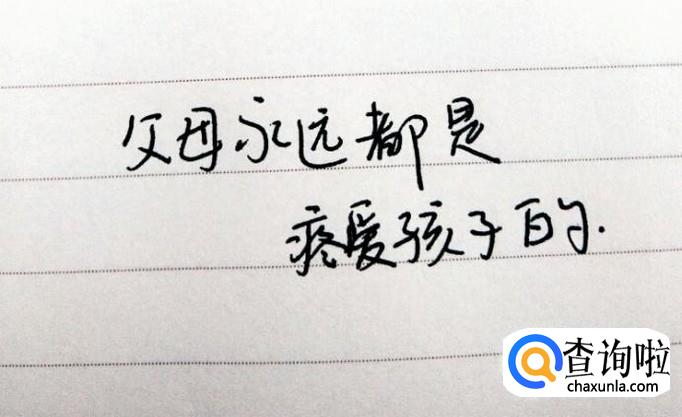 父母永远都是
疼爱孩子的.
查询啦
chaxunla.com